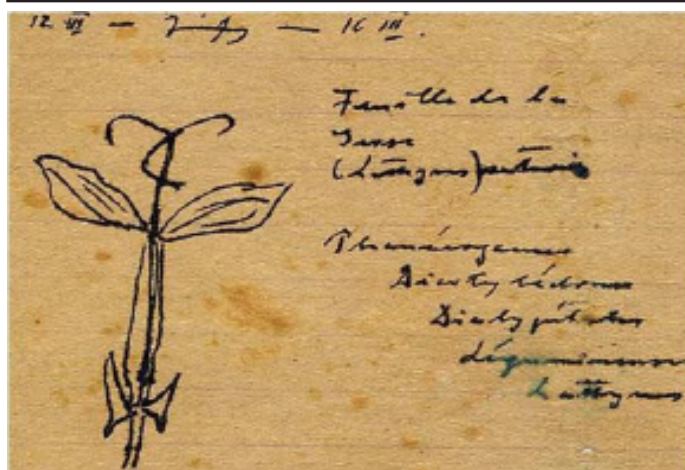 12 III — — 16 III.
Feuille de la
Gesse
(Lathyrus)
Phanérogames
Dicotylédones
Dialypétales
Légumineuses
Lathyrus